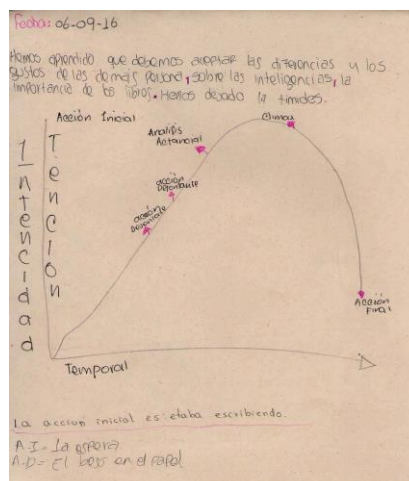 Fecha: 06-09-16
Hemos aprendido que debemos aceptar las diferencias y los
gustos de las demás persona, sobre las inteligencias, la
importancia de los libros. Hemos dejado la timides.
Acción Inicial
Climax
Analisis
Actancial
acción
Detonante
acción
Detonante
Intencidad
Tención
Acción
Final
Temporal
La accion inicial es: etaba escribiendo.
A.I= La espera
A.D= El beso en el papel